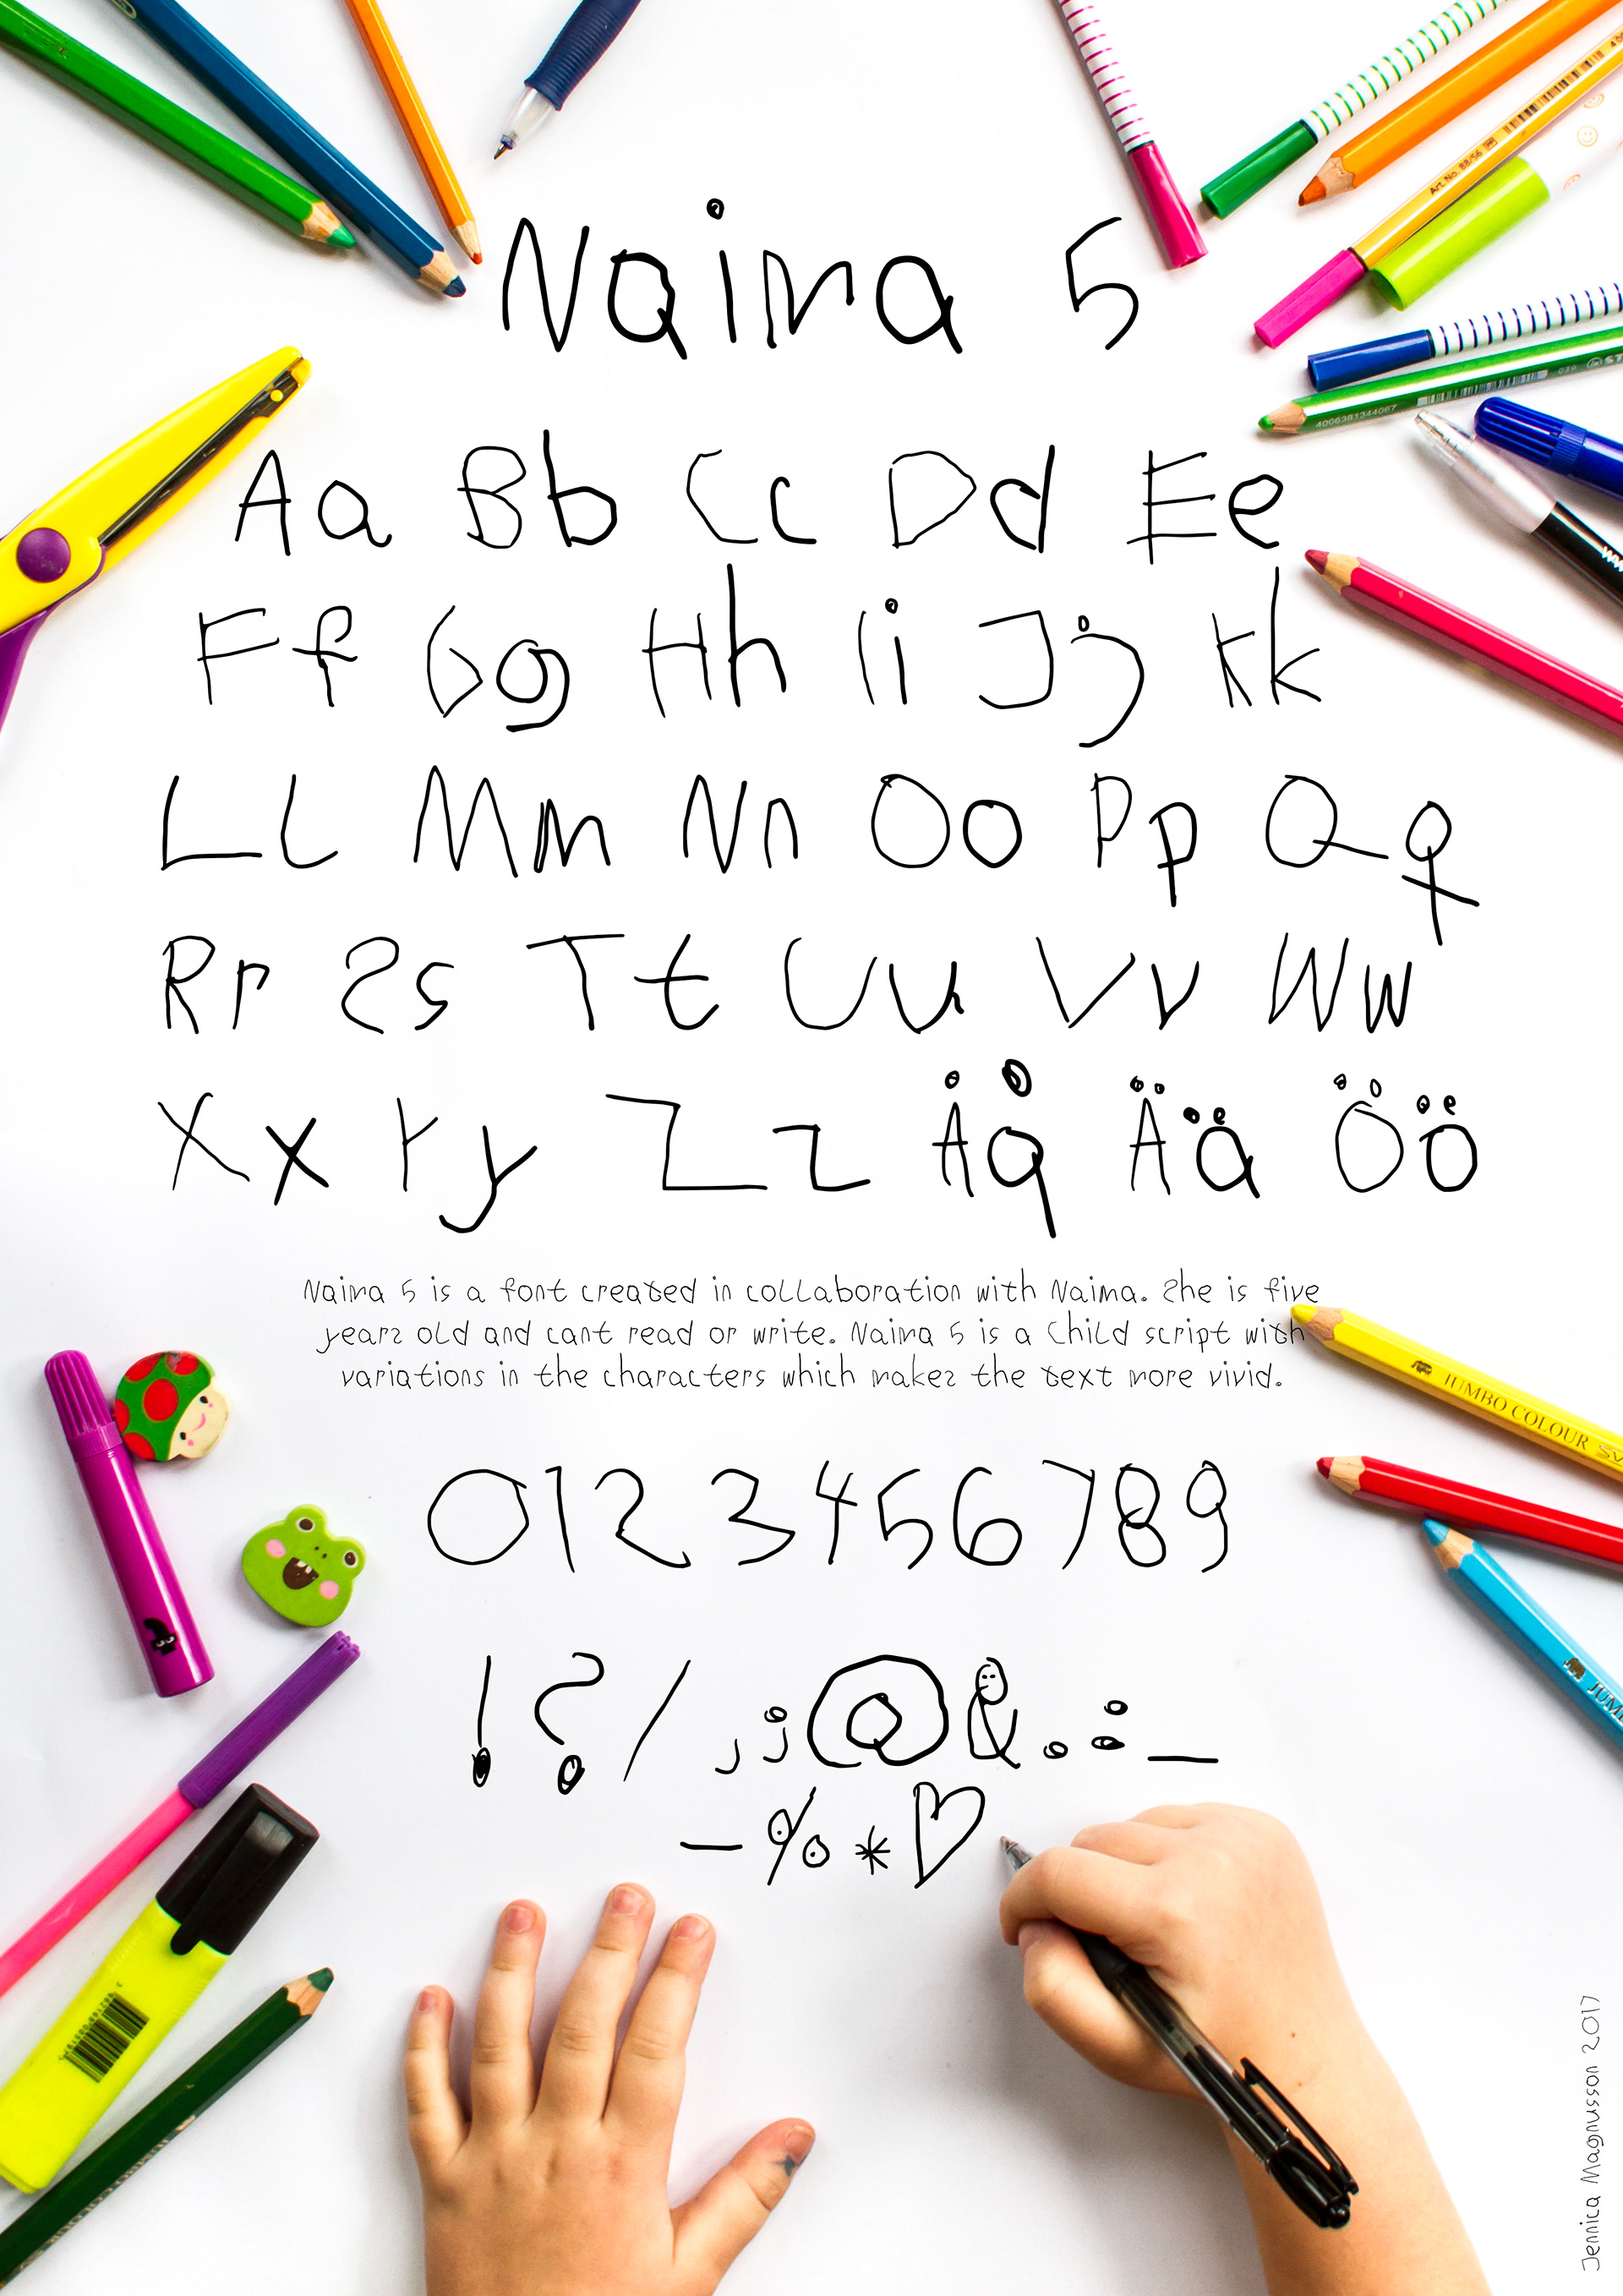 Naima 5
Aa Bb Cc Dd Ee
Ff Gg Hh Ii Jj Kk
Ll Mm Nn Oo Pp Qq
Rr Ss Tt Uu Vv Ww
Xx Yy Zz Åå Ää Öö
Naima 5 is a font created in collaboration with Naima. She is five
years old and cant read or write. Naima 5 is a Child script with
variations in the characters which makes the text more vivid.
0123456789
!?/,;@&.:_
-%*♡
Jennica Magnusson 2017
Art. No. 88/56
4006381344067
JUMBO COLOUR